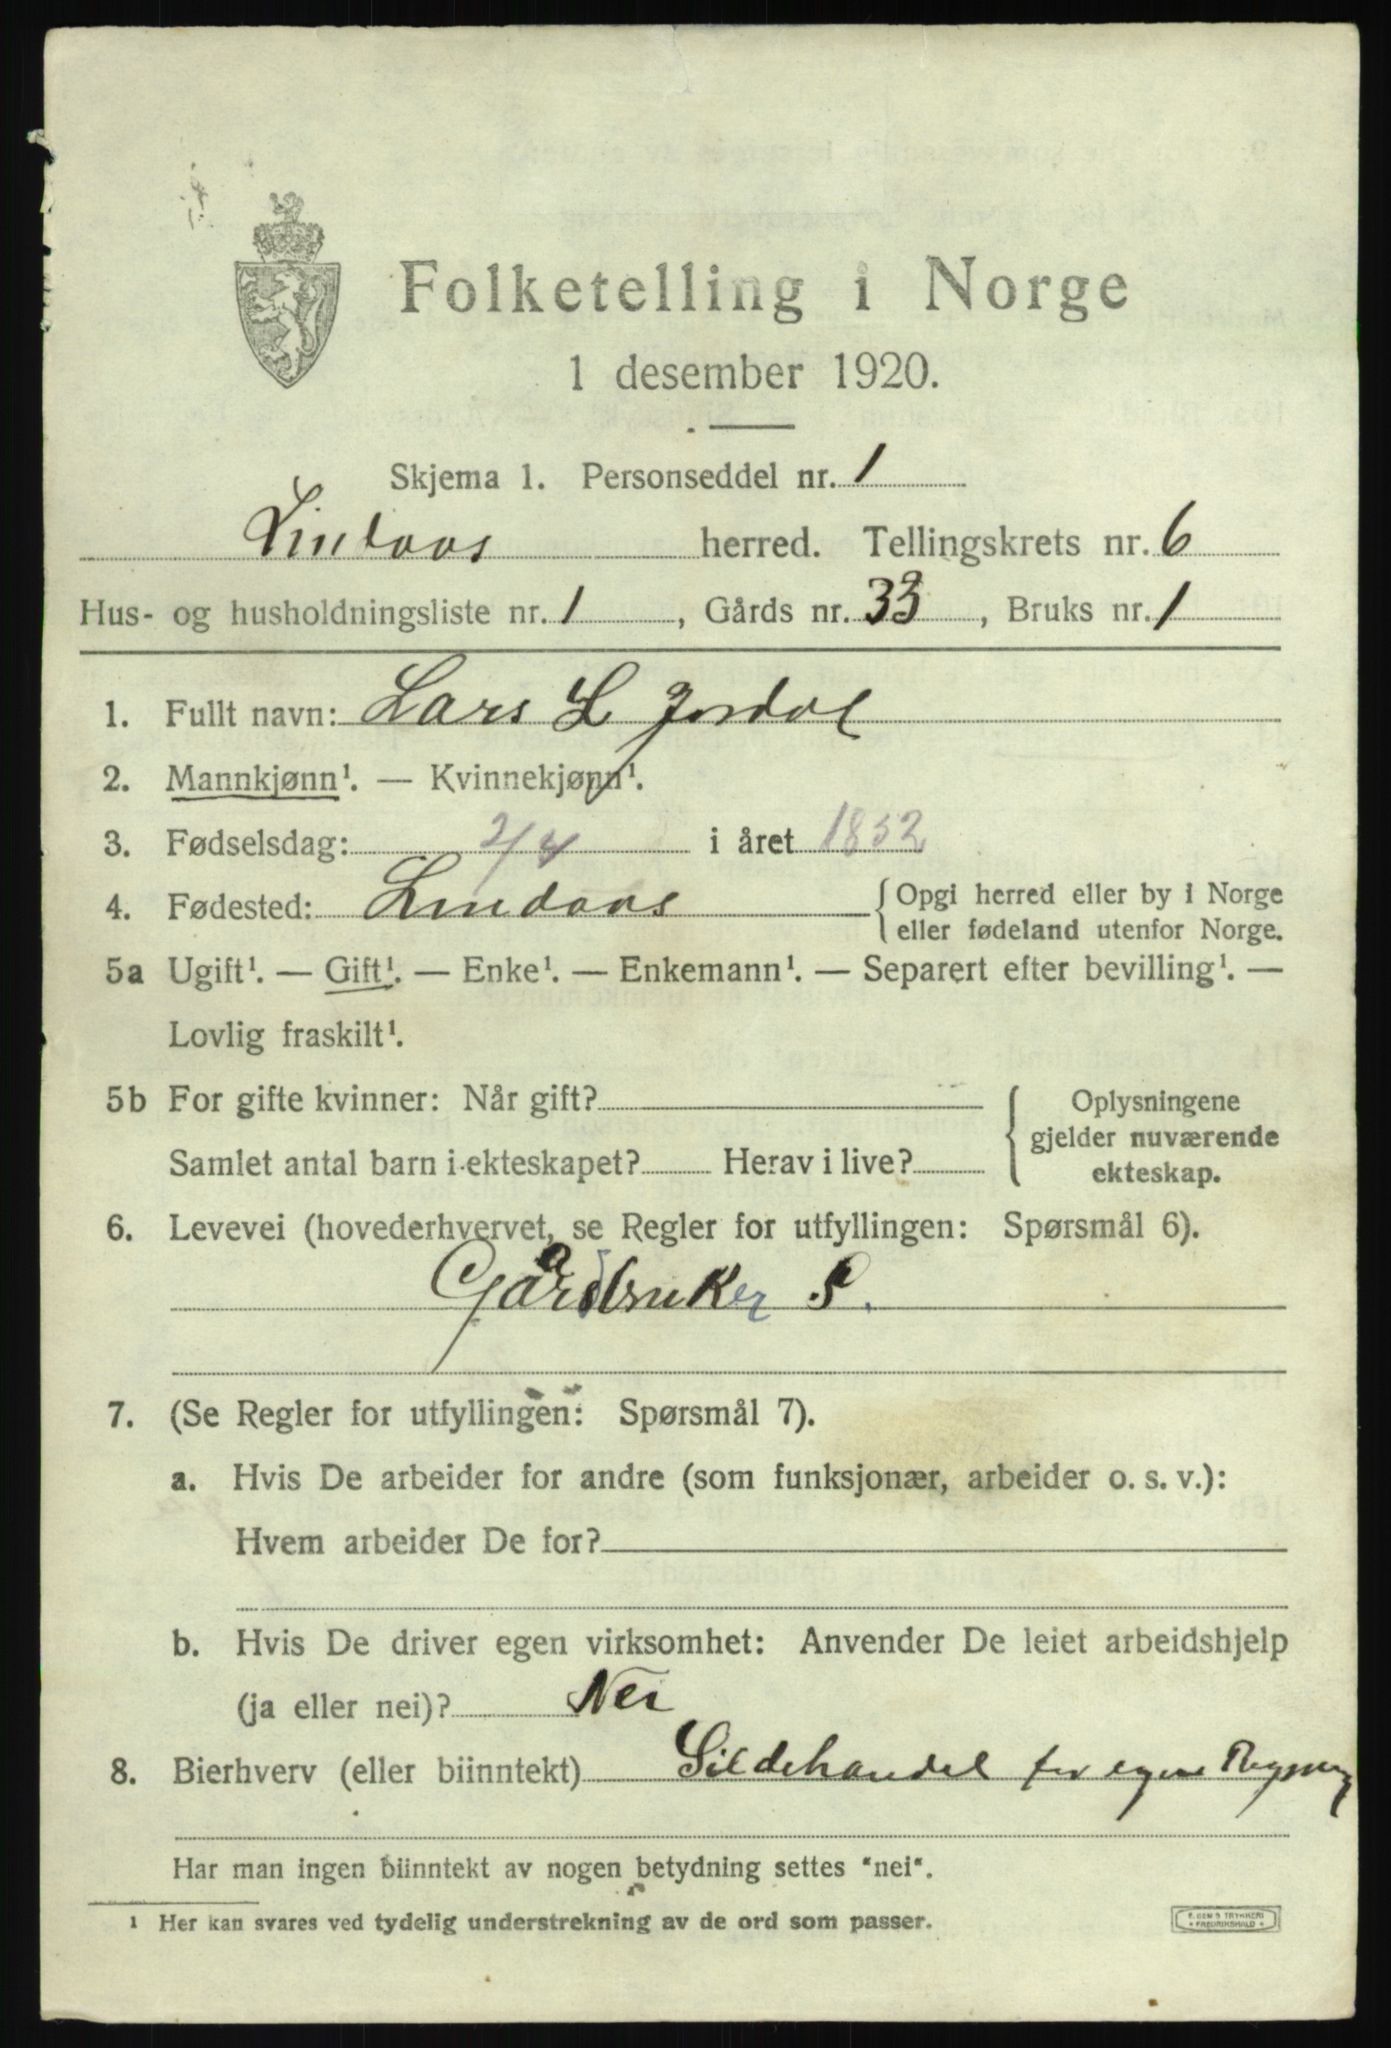 Folketelling i Norge
1 desember 1920.
Skjema 1. Personseddel nr. 1
Lindaas herred. Tellingskrets nr. 6
Hus- og husholdningsliste nr. 1, Gårds nr. 33, Bruks nr. 1
1. Fullt navn: Lars L Jordal
2. Mannkjønn¹. — Kvinnekjønn¹.
3. Fødselsdag: 2/4 i året 1852
4. Fødested: Lindaas { Opgi herred eller by i Norge
eller fødeland utenfor Norge.
5a Ugift¹. — Gift¹. — Enke¹. — Enkemann¹. — Separert efter bevilling¹. —
Lovlig fraskilt¹.
5b For gifte kvinner: Når gift? { Oplysningene
gjelder nuværende
Samlet antal barn i ekteskapet? Herav i live?
ekteskap.
6. Levevei (hovederhvervet, se Regler for utfyllingen: Spørsmål 6).
Gårdbruker S.
7. (Se Regler for utfyllingen: Spørsmål 7).
a. Hvis De arbeider for andre (som funksjonær, arbeider o. s. v.):
Hvem arbeider De for?
b. Hvis De driver egen virksomhet: Anvender De leiet arbeidshjelp
(ja eller nei)? Nei
8. Bierhverv (eller biinntekt) Sildehandel for egen
Har man ingen biinntekt av nogen betydning settes "nei".
1 Her kan svares ved tydelig understrekning av de ord som passer.
TRYKKERI
FREDRIKSHALD